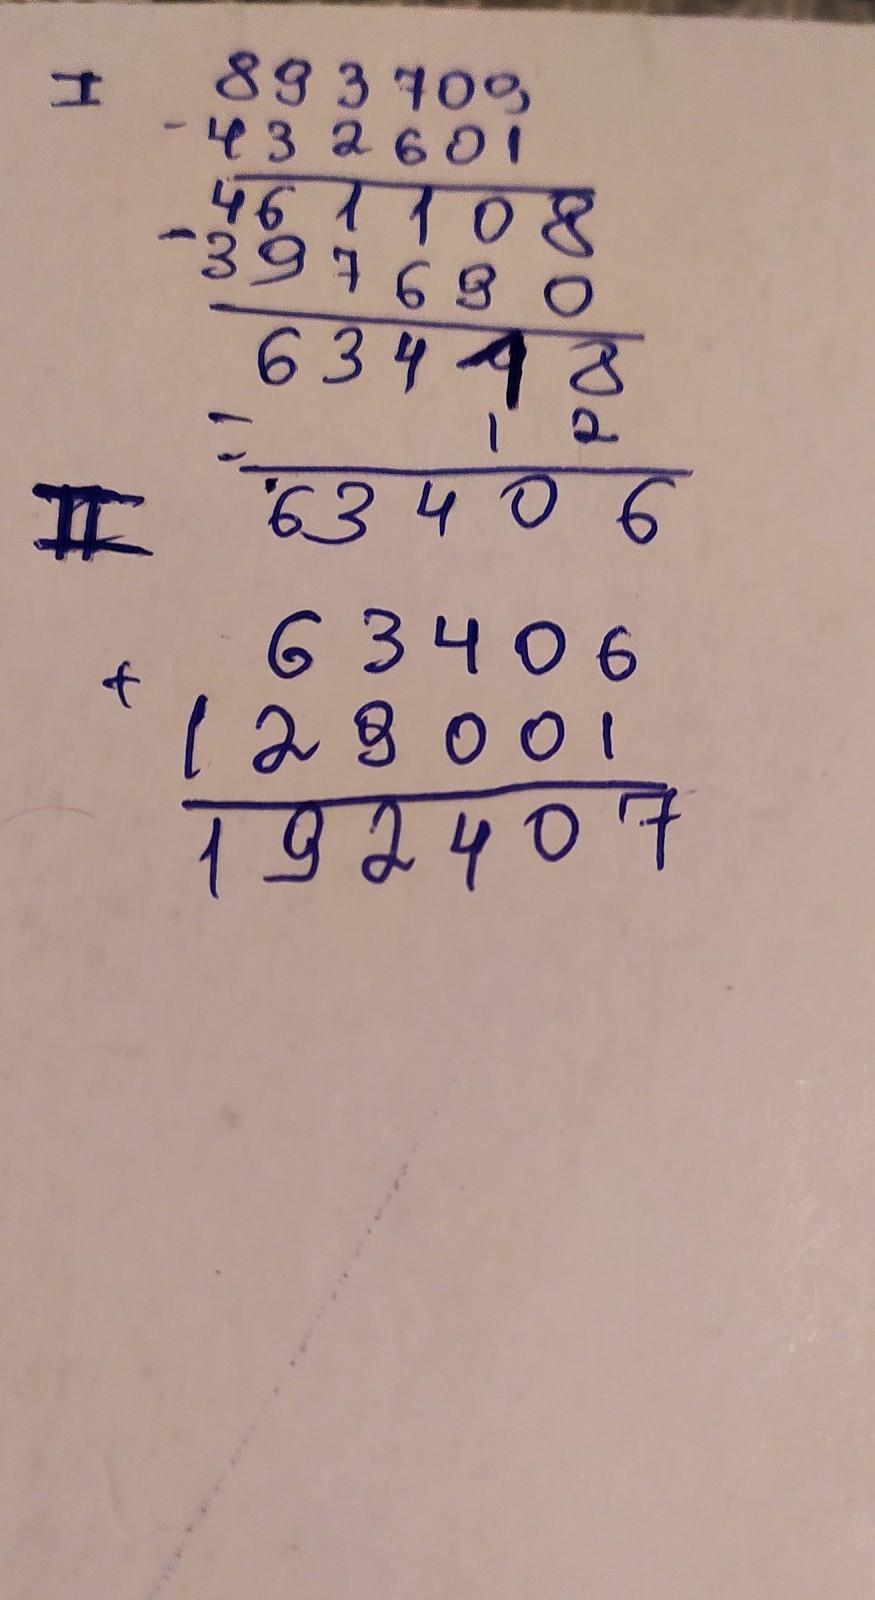 I 893709
- 432601
461108
- 397690
63418
= 12
II 63406
63406
+
129001
192407